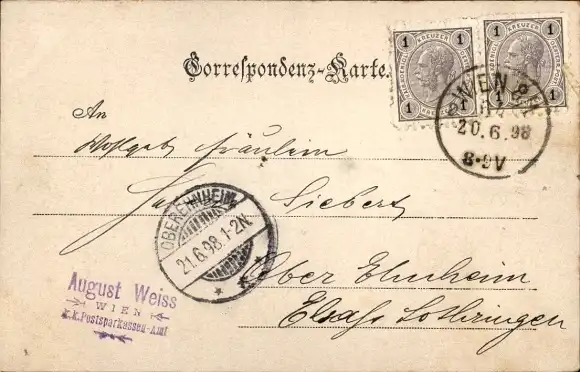 Correspondenz-Karte.
1 KREUZER 1
1 KREUZER 1
WIEN
20.6.98
8·9V
An
Wohlgeb. Fräulein
Siebert
OBEREHNHEIM
21.6.98.1-2N.
Ober Ehnheim
Elsass Lothringen
August Weiss
WIEN
k.k.Postsparkassen-Amt